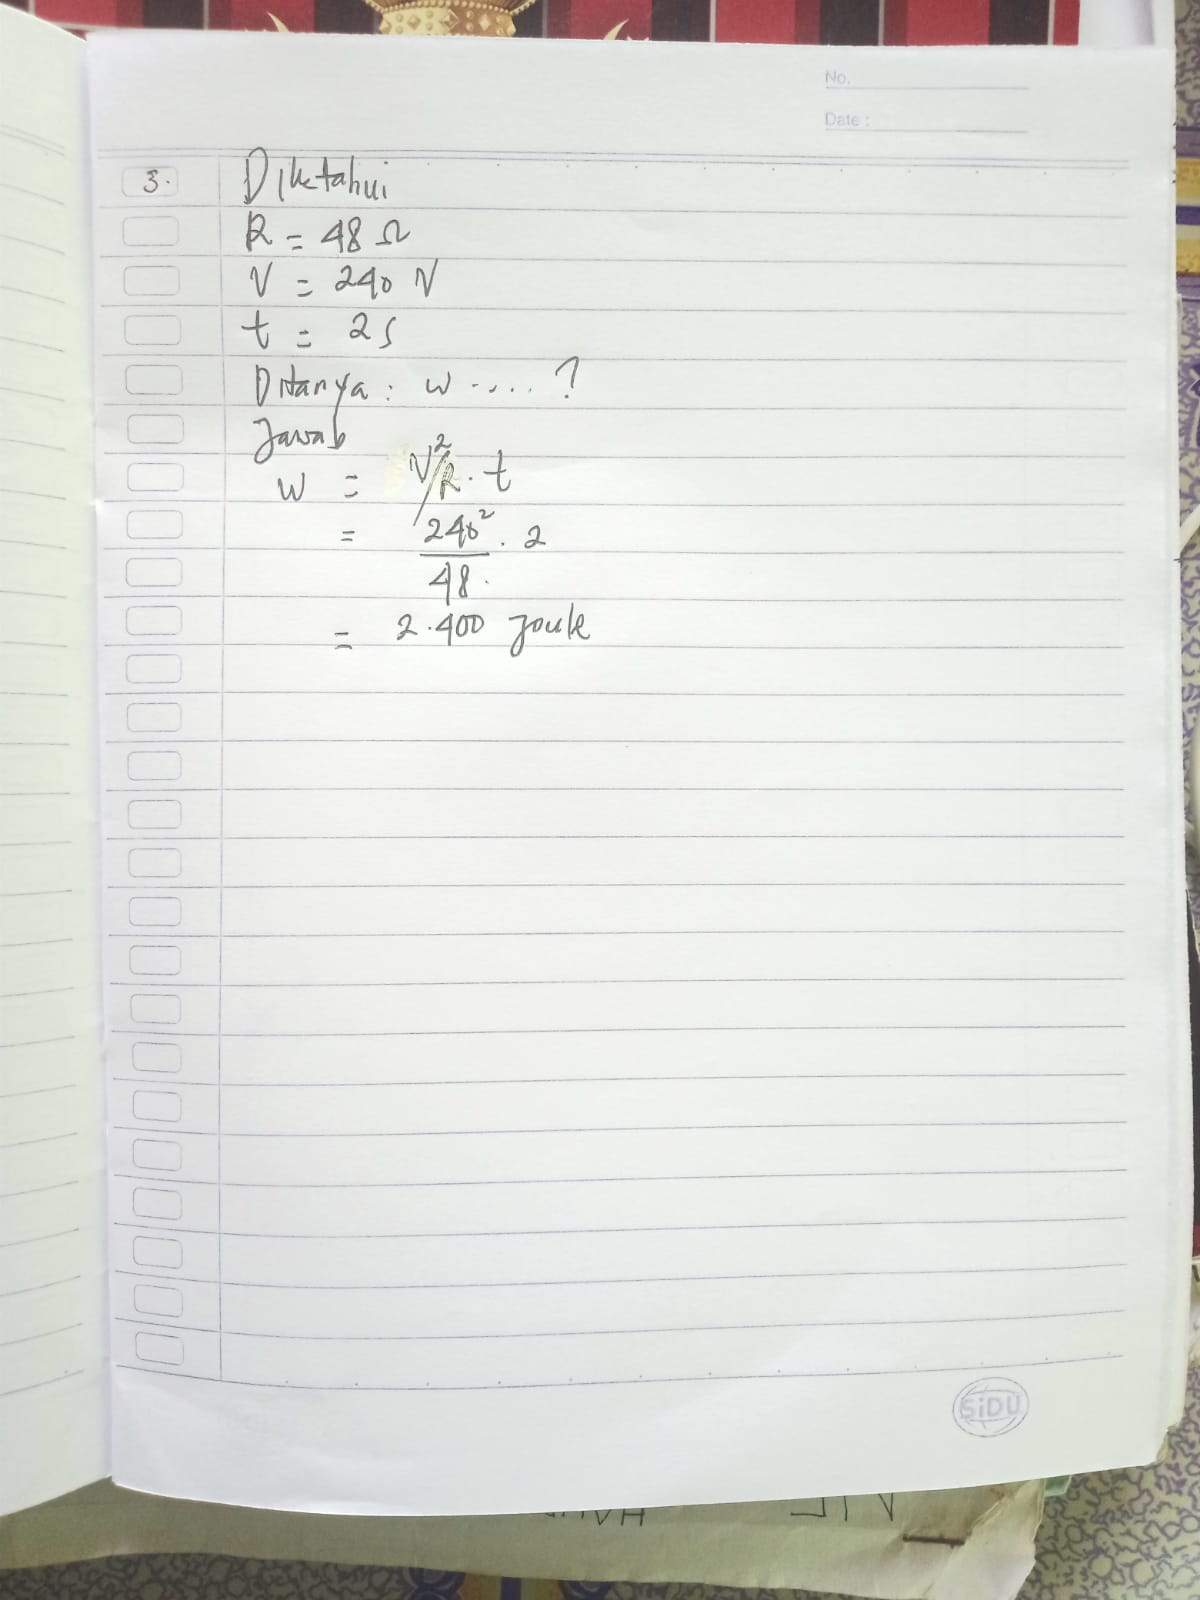 No.
Date :
3. Diketahui
R = 48 Ω
V = 240 V
t = 2s
Ditanya : W ..... ?
Jawab
W = V²/R . t
= 240² . 2
48
= 2.400 Joule
SiDU